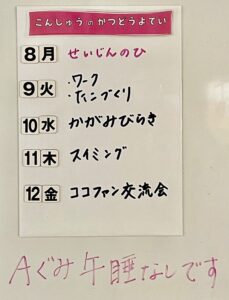 こんしゅうのかつどうよてい
8月 せいじんのひ
9火 ・ワーク
・たこづくり
10水 かがみびらき
11木 スイミング
12金 ココファン交流会
Aぐみ午睡なしです